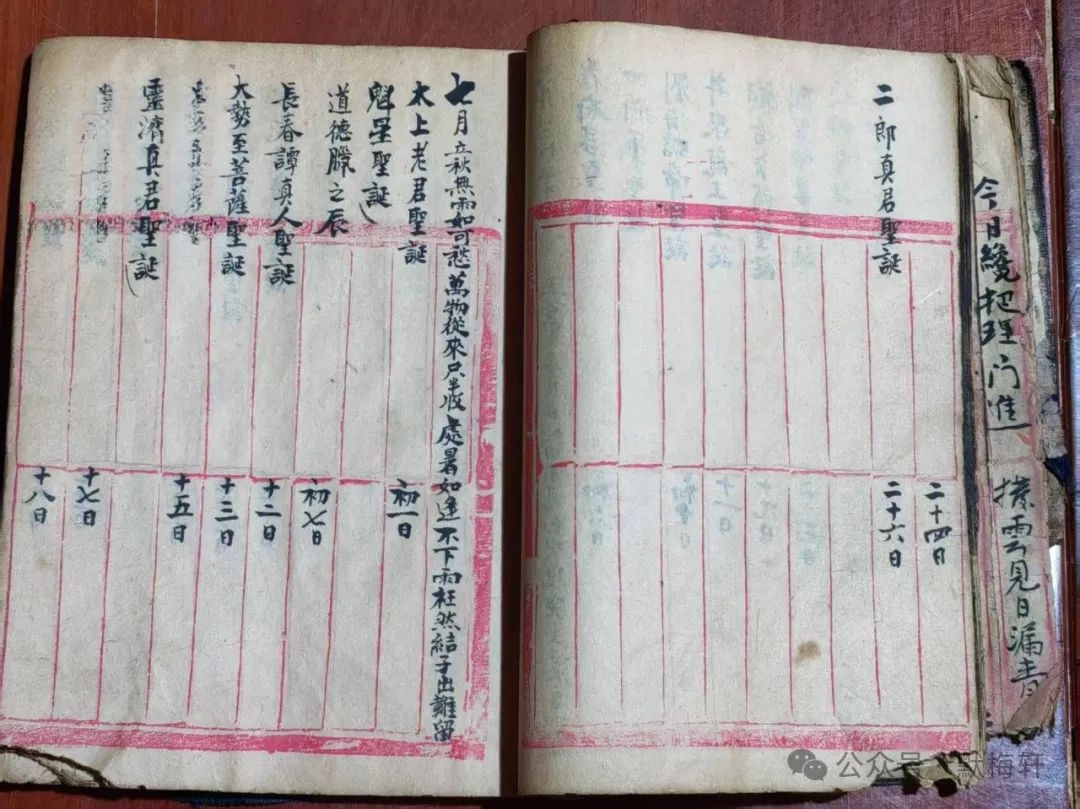 今日纔把理门進
撥雲見日漏青
二十四日
二郎真君聖誕
二十六日
七月立秋無雨如可愁萬物從來只半收處暑如逢不下雨枉然結子出難留
太上老君聖誕
初一日
魁星聖誕
道德臘之辰
初七日
長春譚真人聖誕
十二日
大勢至菩薩聖誕
十三日
十五日
靈濟真君聖誕
十七日
十八日
公众号·默梅轩